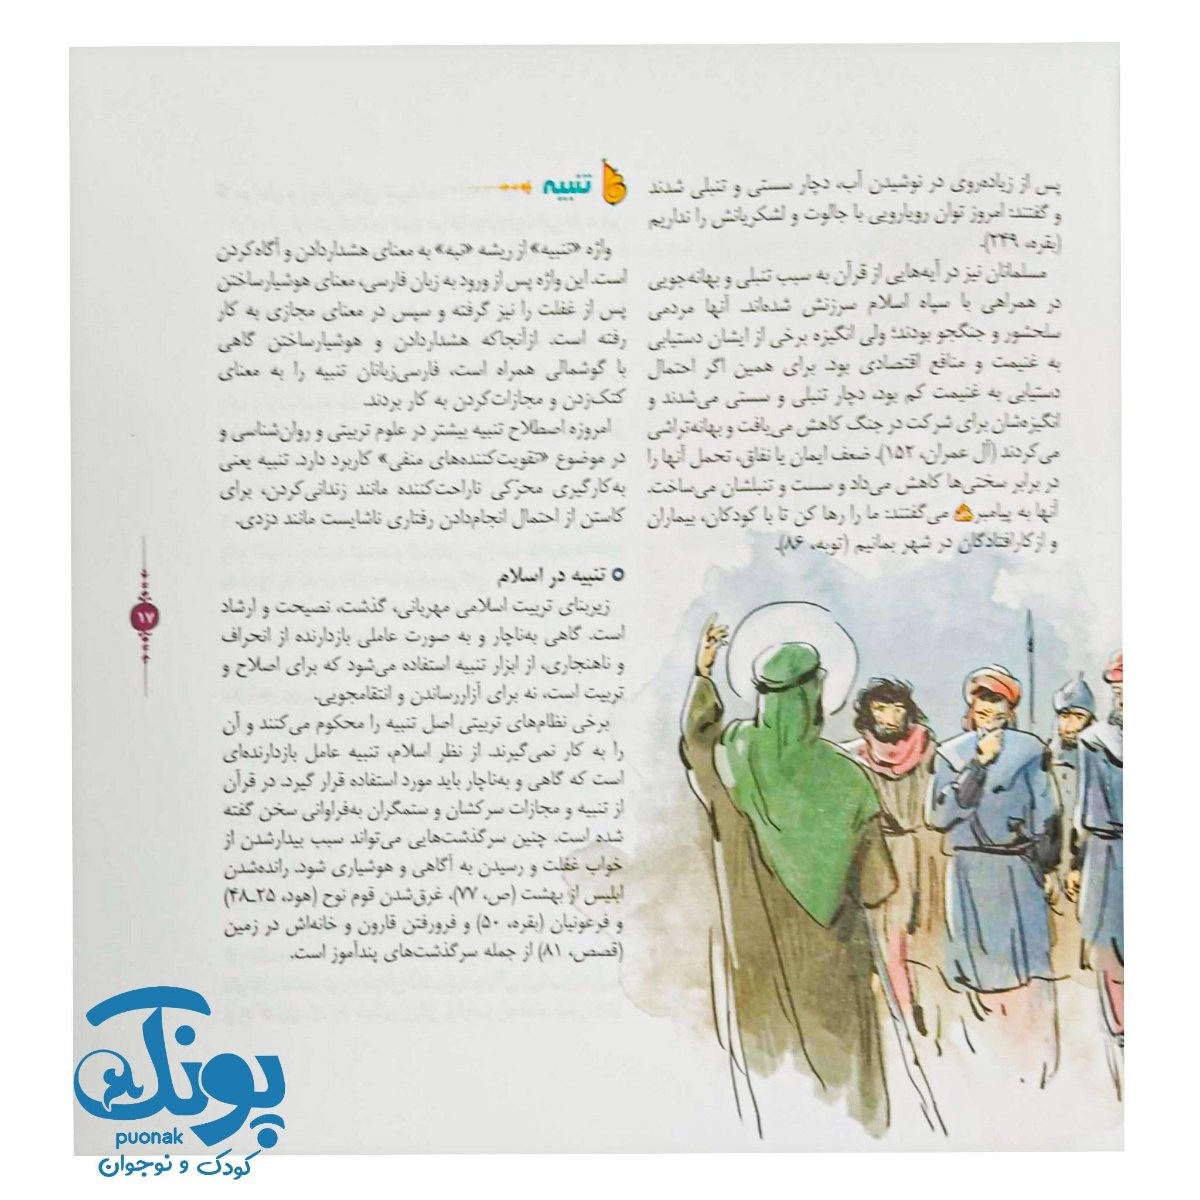 پس از زیاده‌روی در نوشیدن آب، دچار سستی و تنبلی شدند
و گفتند: امروز توان رویارویی با جالوت و لشکریانش را نداریم
(بقره، ۲۴۹).
مسلمانان نیز در آیه‌هایی از قرآن به سبب تنبلی و بهانه‌جویی
در همراهی با سپاه اسلام سرزنش شده‌اند. آنها مردمی
سلحشور و جنگجو بودند؛ ولی انگیزه برخی از ایشان دستیابی
به غنیمت و منافع اقتصادی بود. برای همین اگر احتمال
دستیابی به غنیمت کم بود، دچار تنبلی و سستی می‌شدند و
انگیزه‌شان برای شرکت در جنگ کاهش می‌یافت و بهانه‌تراشی
می‌کردند (آل عمران، ۱۵۲). ضعف ایمان یا نفاق، تحمل آنها را
در برابر سختی‌ها کاهش می‌داد و سست و تنبلشان می‌ساخت.
آنها به پیامبر می‌گفتند: ما را رها کن تا با کودکان، بیماران
و ازکارافتادگان در شهر بمانیم (توبه، ۸۶).
تنبیه
واژه «تنبیه» از ریشه «نبه» به معنای هشداردادن و آگاه‌کردن
است. این واژه پس از ورود به زبان فارسی، معنای هوشیارساختن
پس از غفلت را نیز گرفته و سپس در معنای مجازی به کار
رفته است. ازآنجاکه هشداردادن و هوشیارساختن گاهی
با گوشمالی همراه است، فارسی‌زبانان تنبیه را به معنای
کتک‌زدن و مجازات‌کردن به کار بردند.
امروزه اصطلاح تنبیه بیشتر در علوم تربیتی و روان‌شناسی و
در موضوع «تقویت‌کننده‌های منفی» کاربرد دارد. تنبیه یعنی
به‌کارگیری محرّکی ناراحت‌کننده مانند زندانی‌کردن، برای
کاستن از احتمال انجام‌دادن رفتاری ناشایست مانند دزدی.
تنبیه در اسلام
زیربنای تربیت اسلامی مهربانی، گذشت، نصیحت و ارشاد
است. گاهی به‌ناچار و به صورت عاملی بازدارنده از انحراف
و ناهنجاری، از ابزار تنبیه استفاده می‌شود که برای اصلاح و
تربیت است، نه برای آزاررساندن و انتقامجویی.
برخی نظام‌های تربیتی اصل تنبیه را محکوم می‌کنند و آن
را به کار نمی‌گیرند. از نظر اسلام، تنبیه عامل بازدارنده‌ای
است که گاهی و به‌ناچار باید مورد استفاده قرار گیرد. در قرآن
از تنبیه و مجازات سرکشان و ستمگران به‌فراوانی سخن گفته
شده است. چنین سرگذشت‌هایی می‌تواند سبب بیدارشدن از
خواب غفلت و رسیدن به آگاهی و هوشیاری شود. رانده‌شدن
ابلیس از بهشت (ص، ۷۷)، غرق‌شدن قوم نوح (هود، ۲۵ـ۴۸)
و فرعونیان (بقره، ۵۰) و فرورفتن قارون و خانه‌اش در زمین
(قصص، ۸۱) از جمله سرگذشت‌های پندآموز است.
۱۷
پونک
puonak
کودک و نوجوان